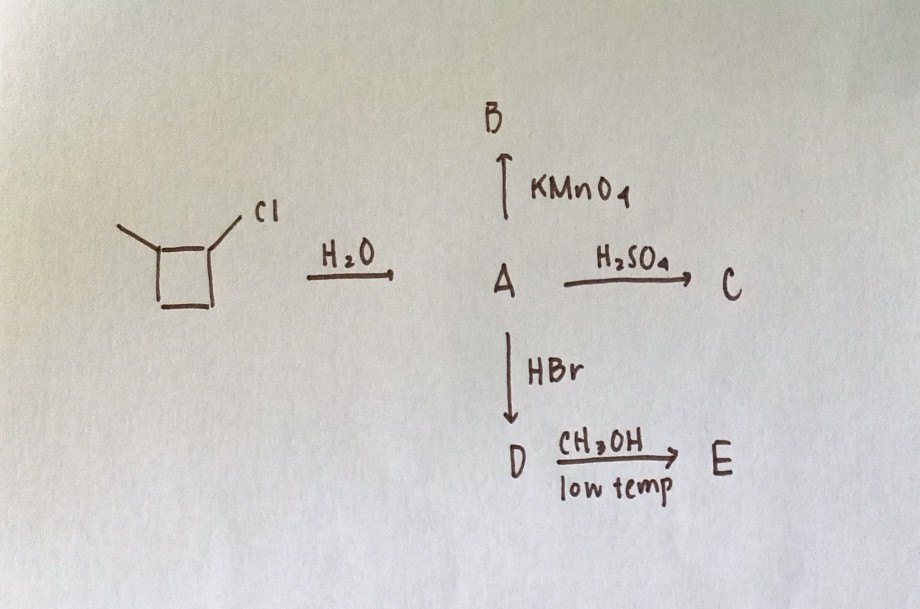 B
KMnO₄
Cl
H₂O
A
H₂SO₄
C
HBr
D
CH₃OH
low temp
E